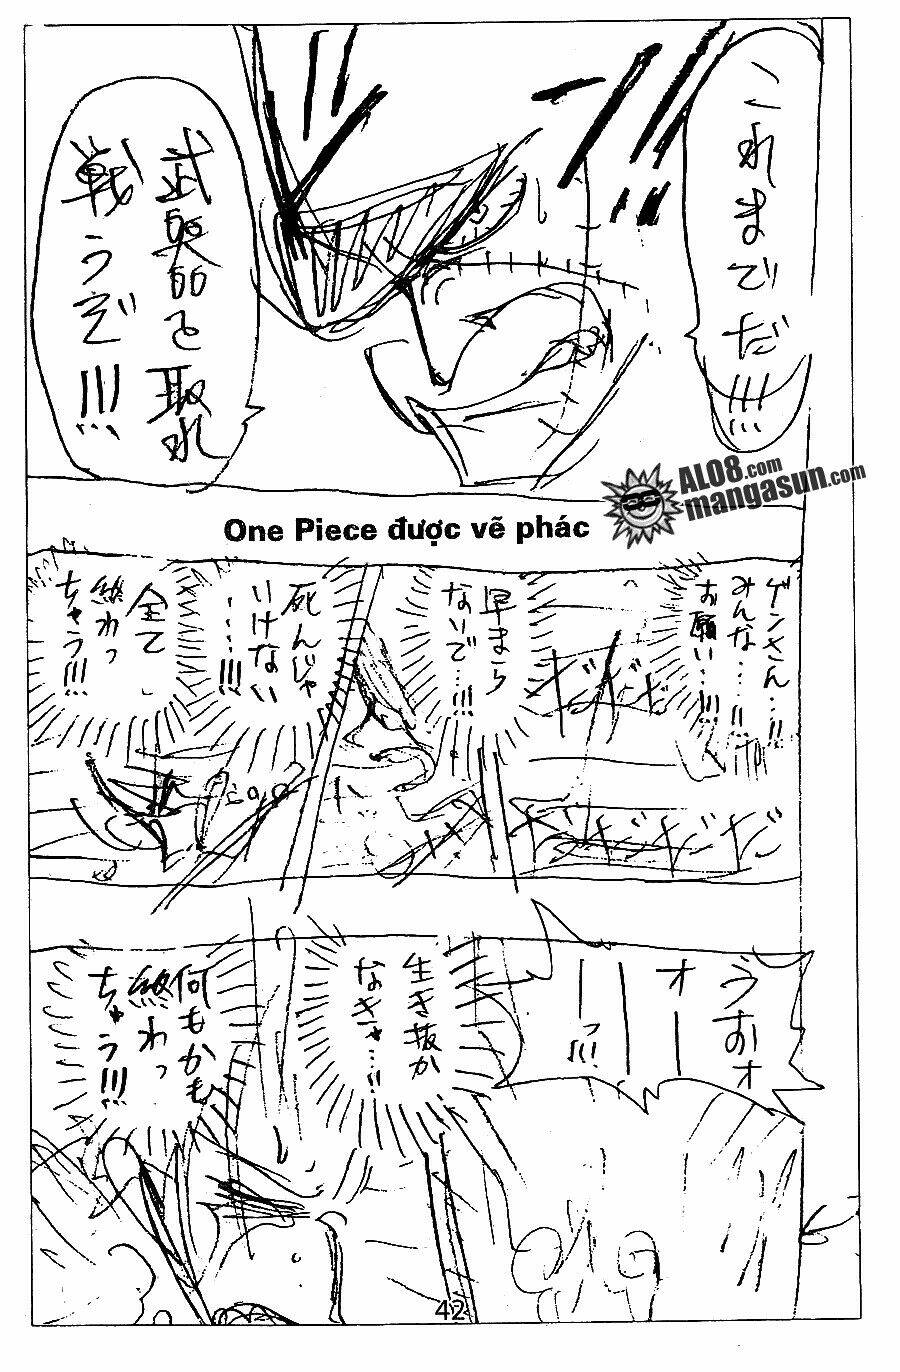 これ
まで
だ!!!
武器を取れ
戦うぞ!!!
AL08.com
mangasun.com
One Piece được vẽ phác
ゲンさん…!!
みんな…!!
お願い…!!!
早まら
ないで…!!!
死んじゃ
いけない
……!!!
全て
終わっ
ちゃう!!!
だだだ
だだだだだ
うおォ
ォー
ーーっ!!!
生き抜か
なきゃ…!!
何もかも
終わっ
ちゃう!!!
42